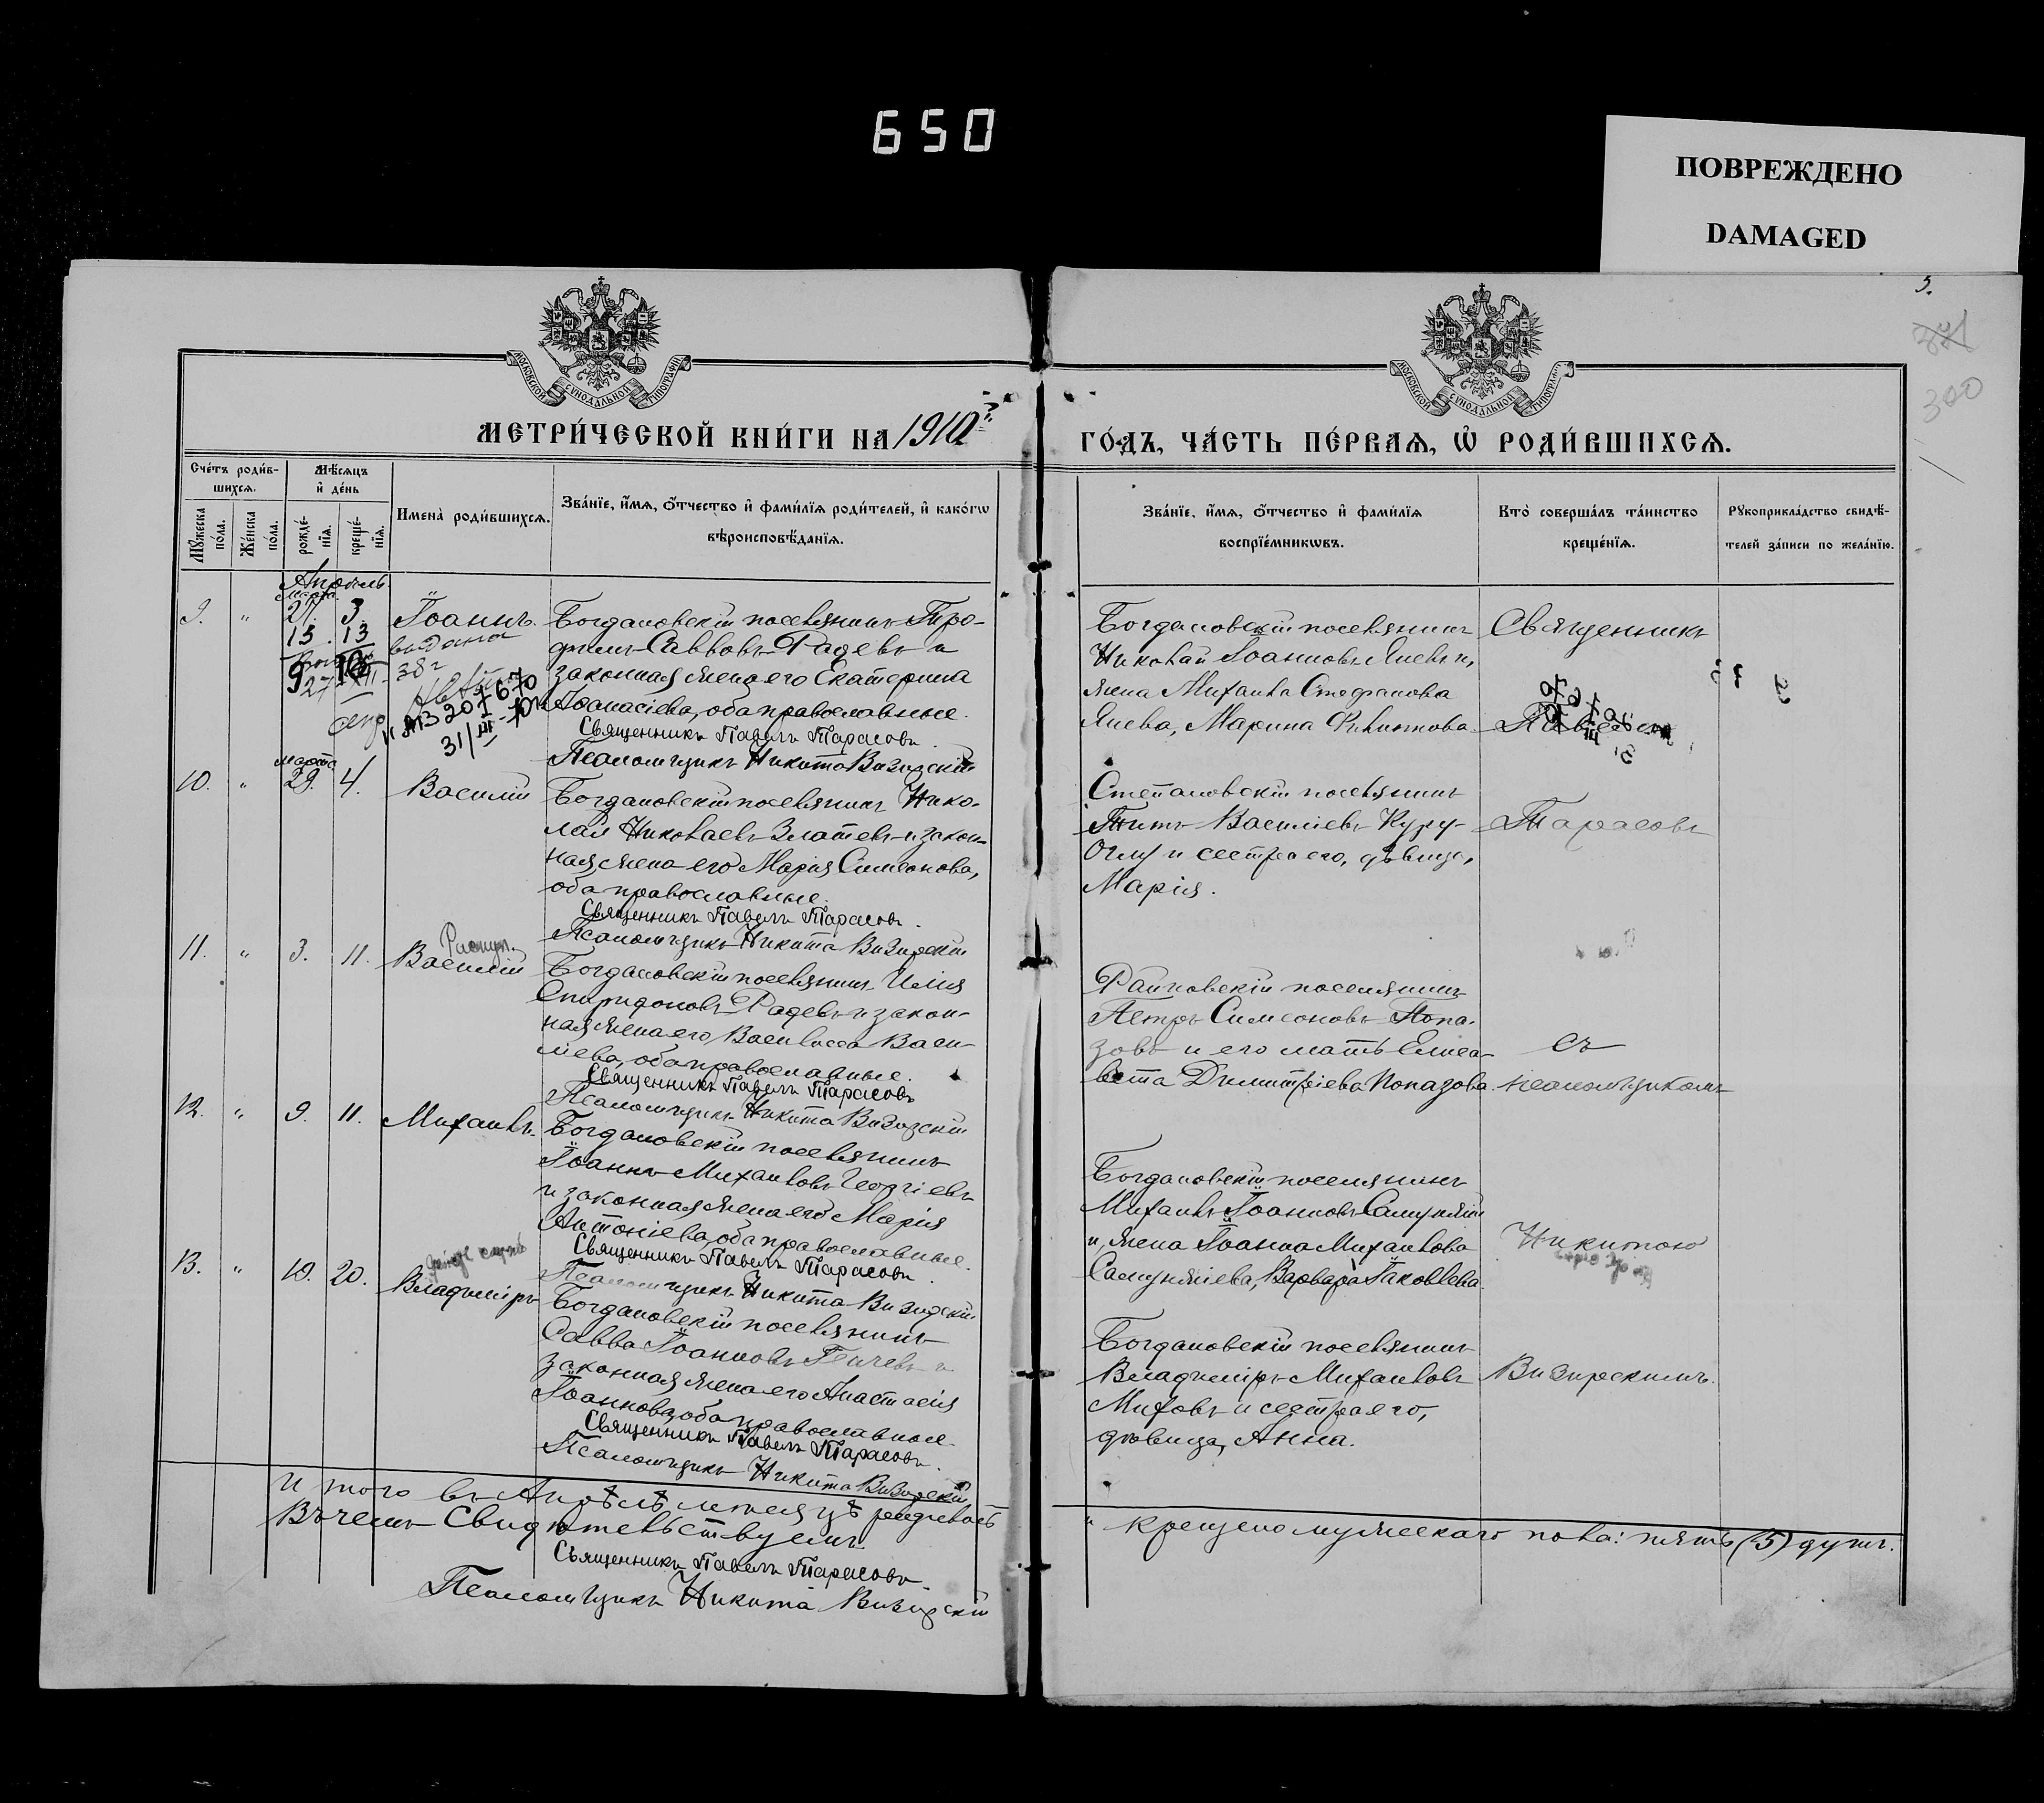 650
ПОВРЕЖДЕНО
DAMAGED
5.
300
МОСКОВСКОЙ СУНОДАЛЬНОЙ ТИПОГРАФІИ
МОСКОВСКОЙ СУНОДАЛЬНОЙ ТИПОГРАФІИ
МЕТРИ́ЧЕСКОЙ КНИ́ГИ НА 1910
ГО́ДЪ, ЧА́СТЬ ПЕ́РВАѦ, Ѡ҆ РОДИ́ВШИХСѦ.
Сче́тъ роди́в-
шихсѧ.
Мꙋ́жеска по́ла.
Же́нска по́ла.
Мѣ́сѧцъ
и҆ де́нь
рожде́-
нїѧ.
креще́-
нїѧ.
Имена̀ роди́вшихсѧ.
Зва́нїе, и҆́мѧ, ѻ҆́тчество и҆ фами́лїѧ роди́телей, и҆ како́гѡ
вѣроисповѣ́данїѧ.
Зва́нїе, и҆́мѧ, ѻ҆́тчество и҆ фами́лїѧ
воспрїе́мникѡвъ.
Кто̀ соверша́лъ та́инство
креще́нїѧ.
Рꙋкоприкла́дство свидѣ́-
телей за́писи по жела́нїю.
Апрѣль
марта
9. " 21. 3. Іоаннъ.
15. 13
выдана
38г
II АБ 207670
31/III-70
Богдановскій поселянинъ Тро-
фимъ Саввовъ Радевъ и
законная жена его Екатерина
Аѳанасіева, оба православные.
Священникъ Павелъ Тарасовъ.
Псаломщикъ Никита Визирскій
Богдановскій поселянинъ
Николай Іоанновъ Яневъ и,
жена Михаила Стефанова
Янева, Марина Филиппова
Священникъ
Павелъ
марта
10. " 29. 4. Василій
Богдановскій поселянинъ Нико-
лай Николаевъ Златевъ и закон-
ная жена его Марія Симеонова,
оба православные.
Священникъ Павелъ Тарасовъ.
Псаломщикъ Никита Визирскій
Степановскій поселянинъ
Титъ Василіевъ Куру-
Оглу и сестра его, дѣвица,
Марія.
Тарасовъ
11. " 3. 11. Василій
Богдановскій поселянинъ Илія
Спиридоновъ Радевъ и закон-
ная жена его Василисса Васи-
ліева, оба православные.
Священникъ Павелъ Тарасовъ
Псаломщикъ Никита Визирскій
Раиловскій поселянинъ
Петръ Симеоновъ Попа-
зовъ и его мать Елиса-
вета Димитріева Попазова.
съ
псаломщикомъ
12. " 9. 11. Михаилъ.
Богдановскій поселянинъ
Іоаннъ Михаиловъ Георгіевъ
и законная жена его Марія
Антоніева, оба православные.
Священникъ Павелъ Тарасовъ.
Псаломщикъ Никита Визирскій
Богдановскій поселянинъ
Михаилъ Іоанновъ
и, жена Іоанна Михаилова
Варвара Іаковлева.
Никитою
13. " 19. 20. Владиміръ
Богдановскій поселянинъ
Савва Іоанновъ Генчевъ и
законная жена его Анастасія
Іоаннова, оба православные.
Священникъ Павелъ Тарасовъ.
Псаломщикъ Никита Визирскій
Богдановскій поселянинъ
Владиміръ Михаиловъ
Миховъ и сестра его,
дѣвица, Анна.
Визирскимъ.
Итого въ Апрѣлѣ мѣсяцѣ родилось
и крещено мужескаго пола: пять (5) душъ.
Въ чемъ Свидѣтельствуемъ
Священникъ Павелъ Тарасовъ.
Псаломщикъ Никита Визирскій